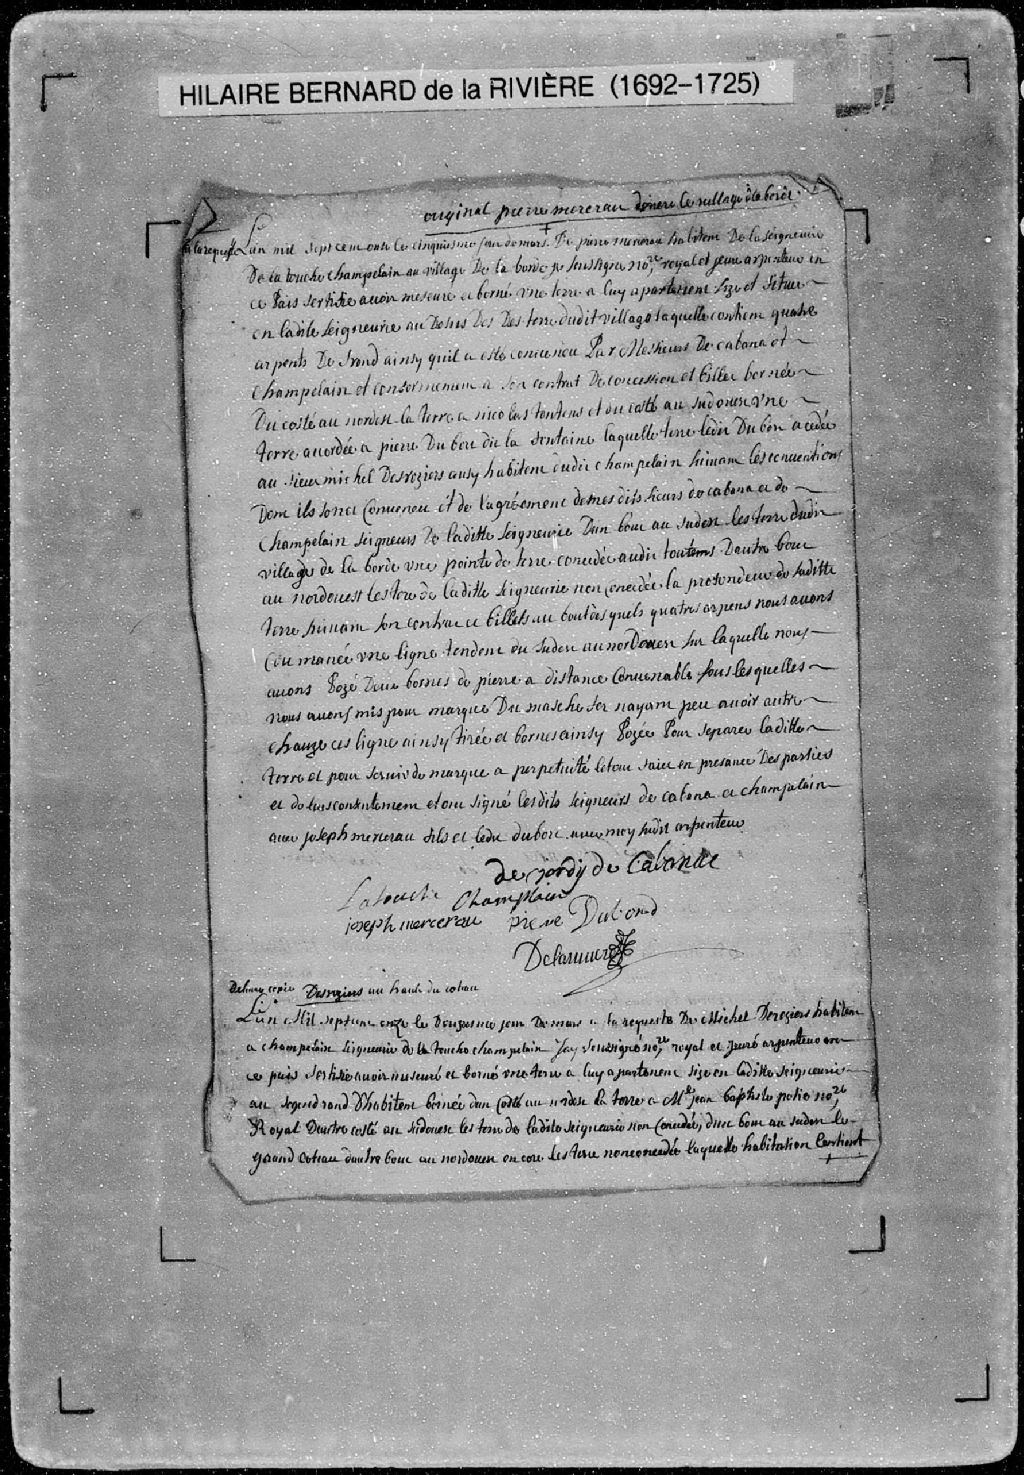 HILAIRE BERNARD de la RIVIÈRE (1692–1725)
original pierre mercerau donere le village de la borde
a la requeste
Lan mil sept cent onze le cinquiesme jour de mars + De pierre mercerau habitent De la seigneurie
De la touche champelain au village De la borde je soussigné no.re royal et jeure arpenteur en
ce Païs sertifie avoir meseuré et borné vne terre a luy apartenent size et situee
en ladite seigneurie au Desus Des Des terre dudit village laquelle contient quatre
arpents De frond ainsy quil a esté conveneu Par Messieurs De cabana et
champelain et conformement a son contrat De concession et billet bornée
Du costé au nordest la terre a nicolas toutens et du costé au sudouest vne
terre acordée a pierre Du bore dit la fontaine laquelle terre ledit Du bore a cedée
au sieur michel Desroziers ausy habitent dudit champelain suivant les conventions
Dont ils sonct Conveneu et de l'agréement de mes dits sieurs de cabana et de
Champelain seigneurs De laditte seigneurie Dun bout au sudest les terre dudit
village de la borde vne pointe de terre concedée audit toutens Dautre bout
au nordouest les terre de laditte seigneurie non concedée la profondeur de laditte
terre suivant son contrac et billets au bout desquels quatre arpens nous avons
Coumancé vne ligne tendent du sudest au nordouest sur laquelle nous
avons Pozé Deux bornes de pierre a distance Convenable sous lesquelles
nous avons mis pour marque Du maschefer nayant peu avoir autre
chauze ces ligne ainsy tirée et bornes ainsy Pozée Pour separer laditte
terre et pour servir de marque a perpetuité le tout faict en presance Des parties
et de leur consentement et ont signé lesdits seigneurs de cabana et champelain
avec joseph mercerau fils et ledit dubore avec moy susdit arpenteur
de jordy de Cabanac
Latouche Champlain
joseph mercerau pierre Dubord
Delariviere
Delivré copie Desroziers au haut du coteau
Lan Mil sept cent onze le Douziesme jour De mars a la requeste De Michel Deroziers habitent
a champelain seigneurie de la touche champelain Jay soussigné no.re royal et Juré arpenteur en
ce païs sertifie avoir meseuré et borné vne terre a luy apartenent size en laditte seigneurie
au segond rand Dhabitent bornée dun Costé au nordest la terre a M.e jean baptiste potie no.re
Royal Dautre costé au sudouest les terre de ladite seigneurie non Concedée, dun bout au sudest le
grand coteau dautre bout au nordouest encore les terre non concedée laquelle habitation Contient